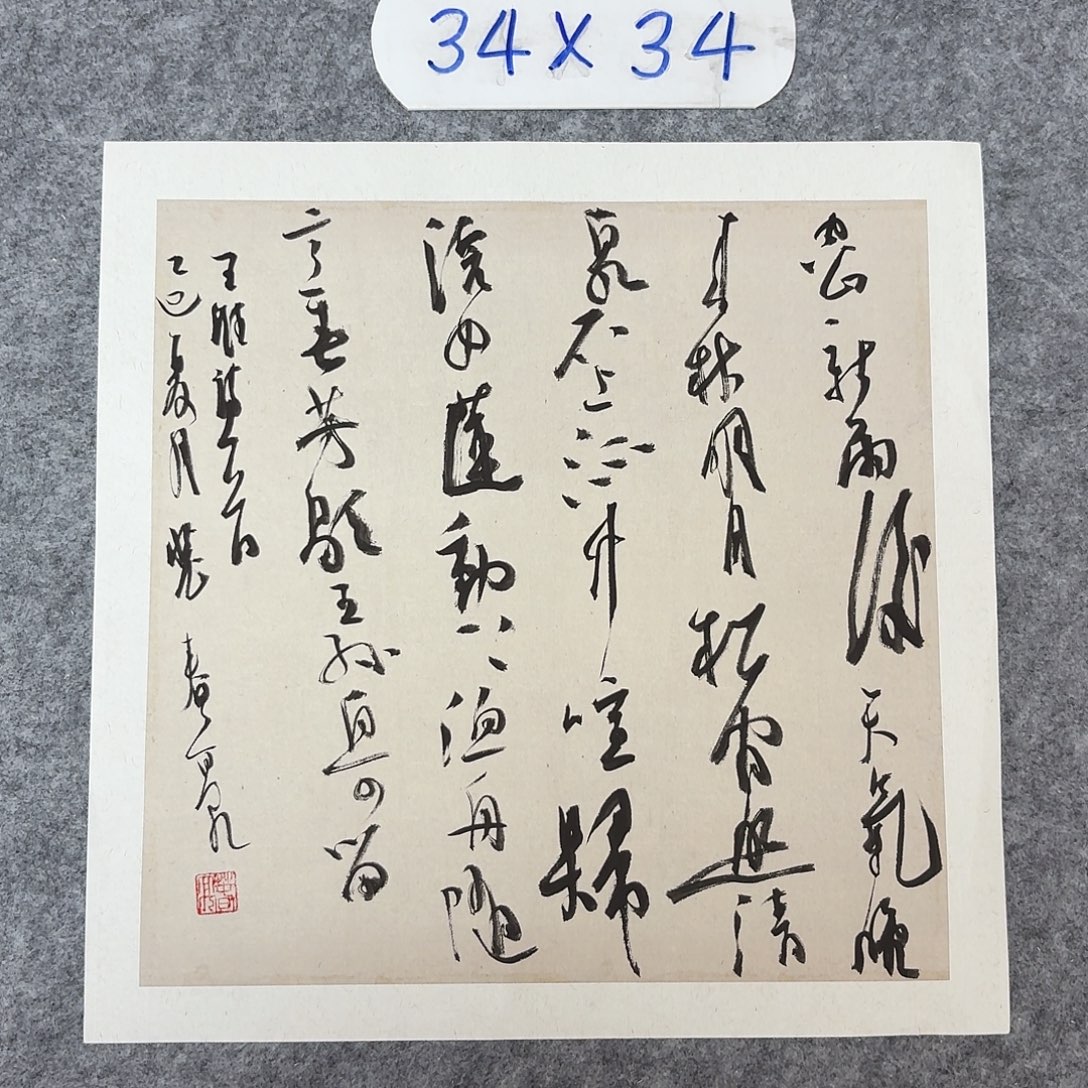 34×34
空山新雨後天氣晚
来秋明月松間照清
泉石上流竹喧歸
浣女蓮動下漁舟隨
意春芳歇王孫自可留
王維詩一首
乙巳夏月